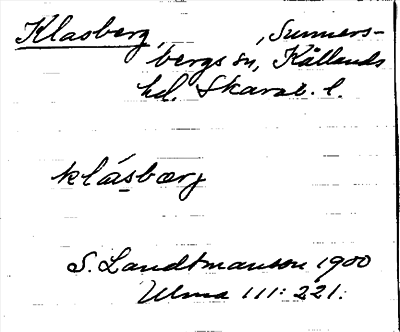 Klasberg, , Sunners-
bergs sn, Kållands
hd. Skarab. l.
klásbærj
S. Landtmanson 1900
Ulma 111: 221.